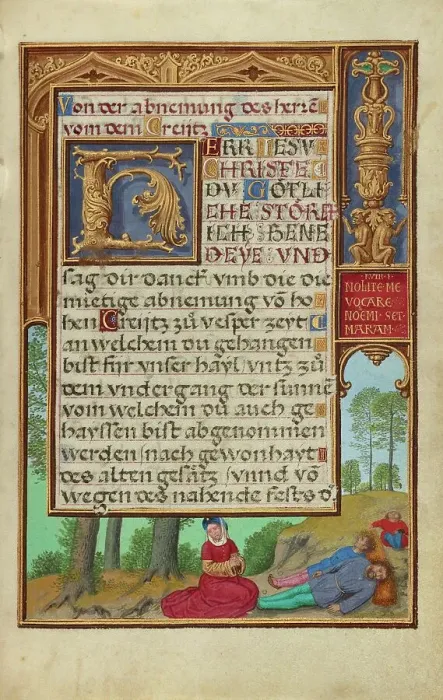 Von der abnemung des herrē
vom dem Creijtz
HERR IESV
CHRISTE
DV GÖTLI
CHE STÖRE
ICH BENE
DEYE VND
sag dir danck vmb die die
mietige abnemung vō ho
hen Creijtz zů vesper zeyt
an welchem du gehangen
bist für vnser hayl vntz zů
dem vndergang der sunne
vom welchem du auch ge
hayssen bist abgenommen
werden nach gewonhayt
des alten gesätz vnnd vō
wegen des nahende fests d̕
NOLITE ME
VOCARE
NOEMI SET
MARAM